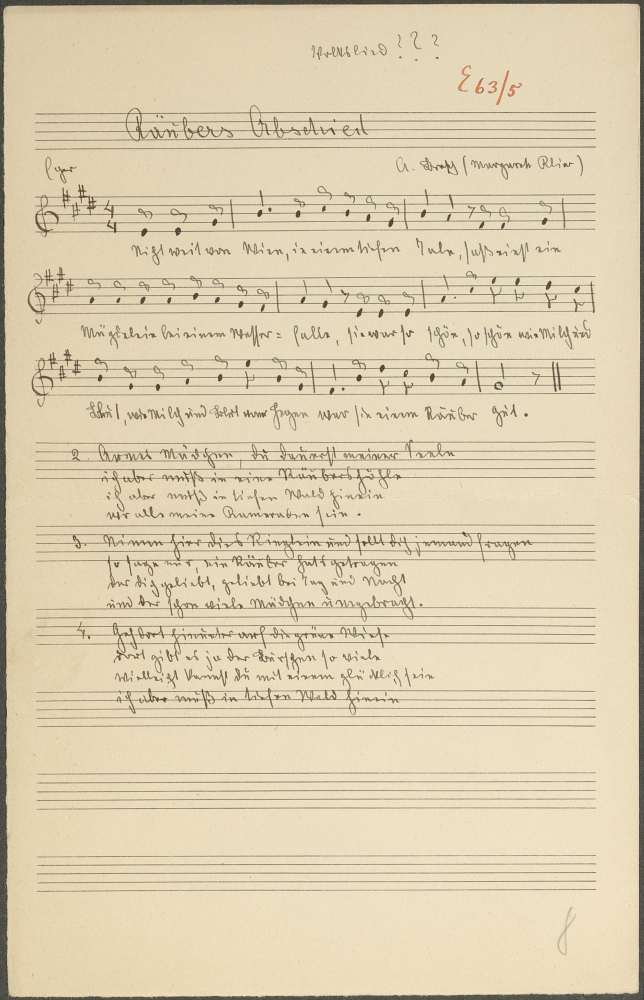 Volkslied ? ? ?
E 63/5
Räubers Abschied
Eger
A. Brosch (Margareth Klier)
4
4
Nicht weit von Wien, in einem tiefen Tale, saß einst ein
Mägdelein bei einem Wasser= falle, sie war so schön, so schön wie Milch und
Blut, wie Milch und Blut von Herzen war sie einem Räuber gut.
2. Armes Mädchen, du dauerst meiner Seele
ich aber muß in eine Räubershöhle
ich aber muß in tiefen Wald hinein
wo alle meine Kameraden sein.
3. Nimm hier dies Ringlein und sollt dich jemand fragen
so sage nur, ein Räuber hats getragen
der dich geliebt, geliebt bei Tag und Nacht
und der schon viele Mädchen umgebracht.
4. Geh dort hinunter auf die grüne Wiese
dort gibt es ja der Bürschen so viele
vielleicht kannst du mit einem glücklich sein
ich aber muß in tiefen Wald hinein
8